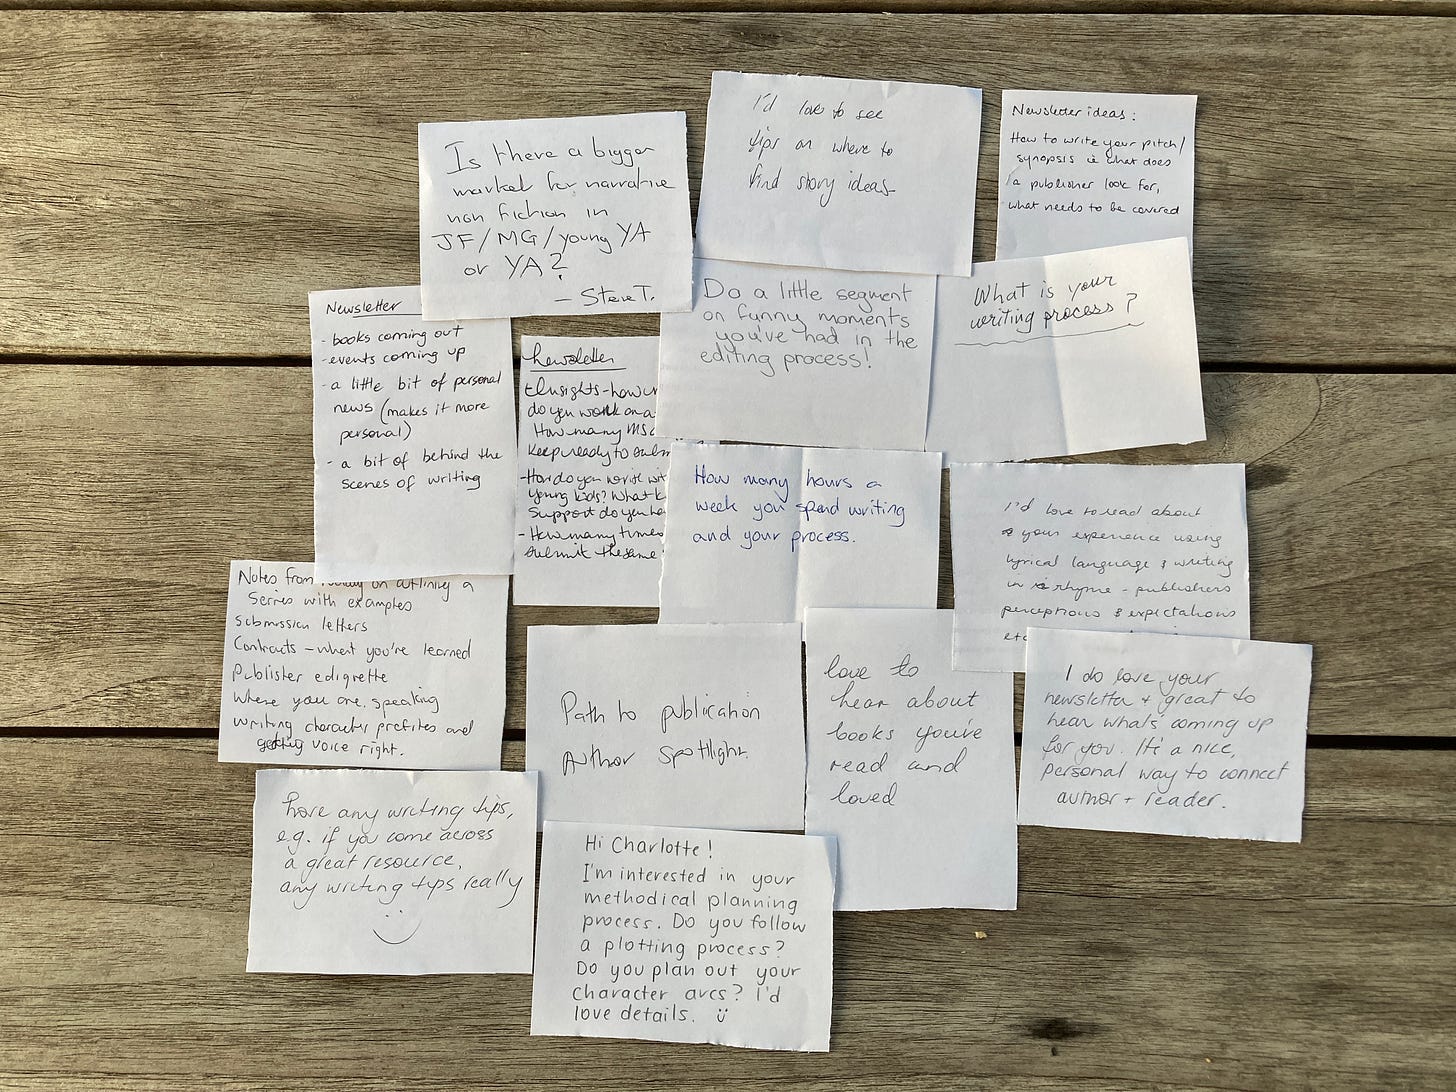 Is there a bigger
market for narrative
non fiction in
JF/MG/young YA
or YA?
- Steve T.
I'd love to see
tips on where to
find story ideas
Newsletter ideas:
How to write your pitch/
synopsis ie what does
a publisher look for,
what needs to be covered
Newsletter
- books coming out
- events coming up
- a little bit of personal
news (makes it more
personal)
- a bit of behind the
scenes of writing
Newsletter
Insights - how
do you work on a
How many MS
Keep ready to
- How do you write
young kids? What
Support do you
- How many times
submit the same
Do a little segment
on funny moments
you've had in the
editing process!
What is your
writing process?
How many hours a
week you spend writing
and your process.
I'd love to read about
your experience using
lyrical language & writing
in rhyme - publishers
perceptions & expectations
etc
Notes from on outlining a
Series with examples
Submission letters
Contracts - what you've learned
Publisher ediquette
Where you are speaking
Writing character profiles and
getting voice right.
Path to publication
Author spotlight
love to
hear about
books you've
read and
loved
I do love your
newsletter + great to
hear what's coming up
for you. It's a nice,
personal way to connect
author + reader.
any writing tips,
e.g. if you come across
a great resource,
any writing tips really
Hi Charlotte!
I'm interested in your
methodical planning
process. Do you follow
a plotting process?
Do you plan out your
character arcs? I'd
love details. ü